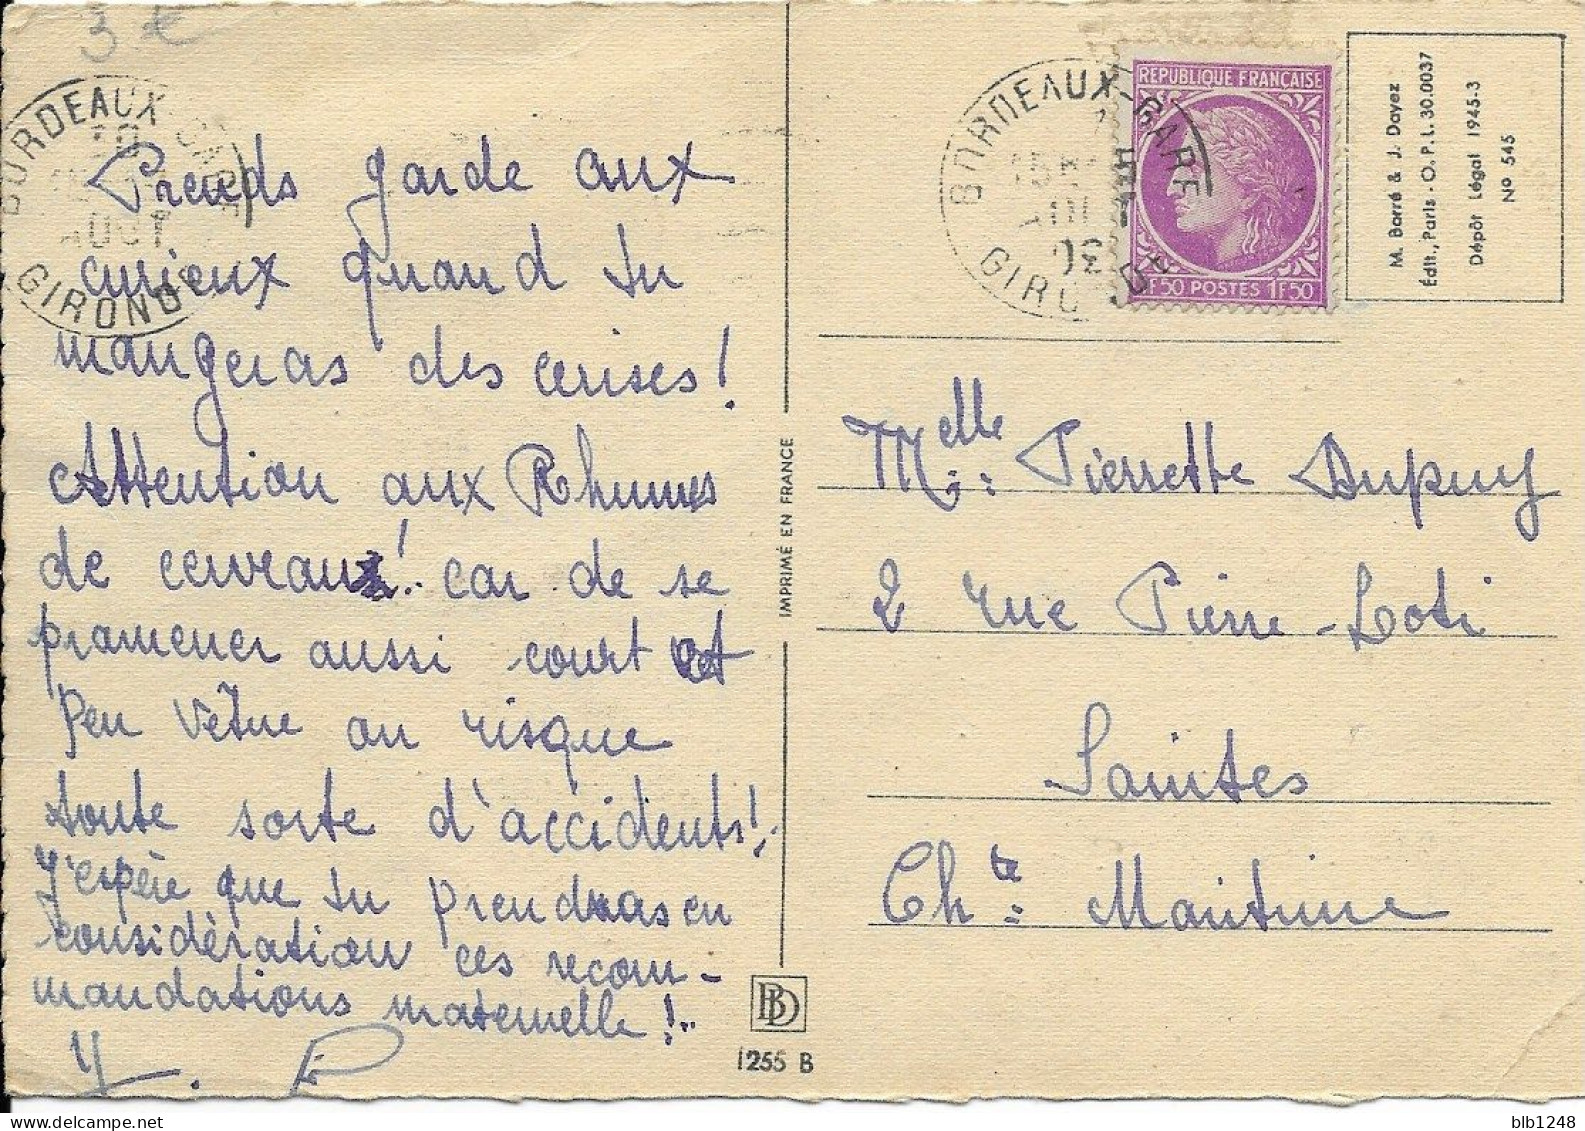 3 €
BORDEAUX-GARE
GIRONDE
Prends garde aux
curieux quand tu
mangeras des cerises !
Attention aux Rhumes
de cerveaux ! car de se
pramener aussi court et
peu vêtue on risque
toute sorte d'accidents !
J'espère que tu prendras en
considération ces recom-
mandations maternelle !..
Y. P
IMPRIMÉ EN FRANCE
BD
1255 B
BORDEAUX-GARE
GIRONDE
REPUBLIQUE FRANÇAISE
1F50 POSTES 1F50
M. Barré & J. Dayez
Édit., Paris - O.P.L. 30.0037
Dépôt Légal 1945-3
No 545
Melle : Pierrette Dupuy
2 rue Pierre-Loti
Saintes
Chte : Maritime
blb1248